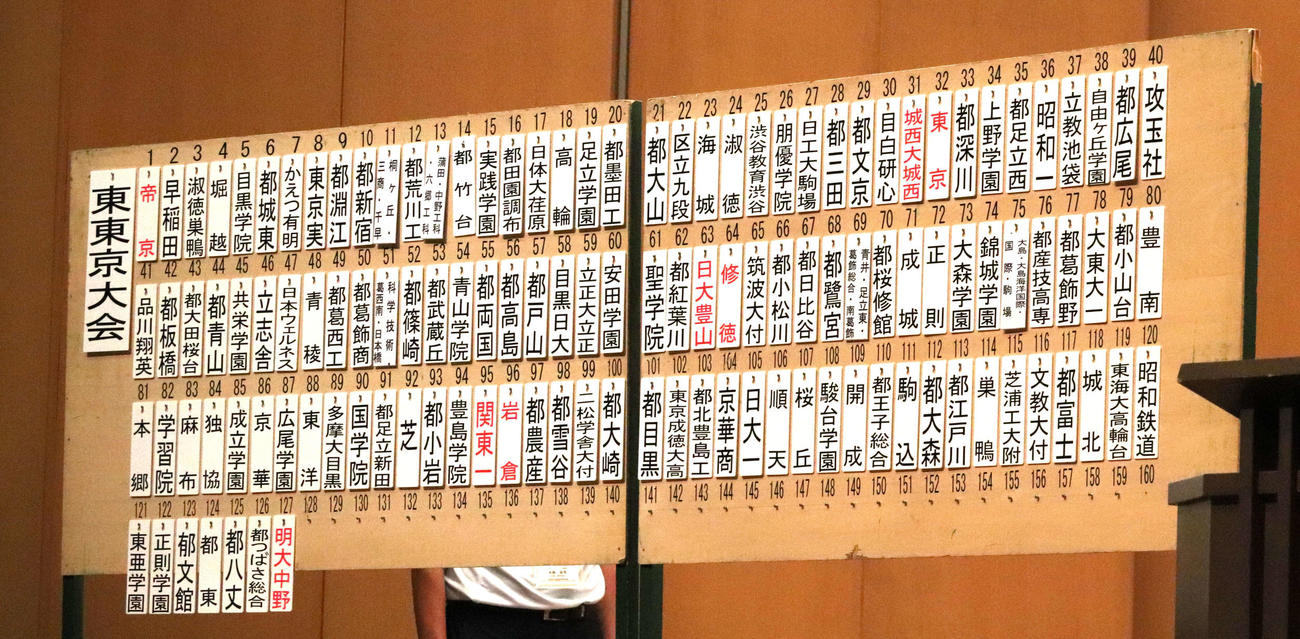 東東京大会
1 帝京
2 早稲田
3 淑徳巣鴨
4 堀越
5 目黒学院
6 都城東
7 かえつ有明
8 東京実
9 都淵江
10 都新宿
11 桐ヶ丘・三商・千早
12 都荒川工
13 蒲田・中野工科・六郷工科
14 都竹台
15 実践学園
16 都田園調布
17 日体大荏原
18 高輪
19 足立学園
20 都墨田工
21 都大山
22 区立九段
23 海城
24 淑徳
25 渋谷教育渋谷
26 朋優学院
27 日工大駒場
28 都三田
29 都文京
30 目白研心
31 城西大城西
32 東京
33 都深川
34 上野学園
35 都足立西
36 昭和一
37 立教池袋
38 自由ケ丘学園
39 都広尾
40 攻玉社
41 品川翔英
42 都板橋
43 都大田桜台
44 都青山
45 共栄学園
46 立志舎
47 日本ウェルネス
48 青稜
49 都葛西工
50 都葛飾商
51 科学技術・葛西南・日本橋
52 都篠崎
53 都武蔵丘
54 青山学院
55 都両国
56 都高島
57 都戸山
58 目黒日大
59 立正大立正
60 安田学園
61 聖学院
62 都紅葉川
63 日大豊山
64 修徳
65 筑波大付
66 都小松川
67 都日比谷
68 都鷺宮
69 青井・足立東・葛飾総合・南葛飾
70 都桜修館
71 成城
72 正則
73 大森学園
74 錦城学園
75 大島・大島海洋国際・国際・駒場
76 都産技高専
77 都葛飾野
78 大東大一
79 都小山台
80 豊南
81 本郷
82 学習院
83 麻布
84 独協
85 成立学園
86 京華
87 広尾学園
88 東洋
89 多摩大目黒
90 国学院
91 都足立新田
92 芝
93 都小岩
94 豊島学院
95 関東一
96 岩倉
97 都農産
98 都雪谷
99 二松学舎大付
100 都大崎
101 都目黒
102 東京成徳大高
103 都北豊島工
104 京華商
105 日大一
106 順天
107 桜丘
108 駿台学園
109 開成
110 都王子総合
111 駒込
112 都大森
113 都江戸川
114 巣鴨
115 芝浦工大附
116 文教大付
117 都富士
118 城北
119 東海大高輪台
120 昭和鉄道
121 東亜学園
122 正則学園
123 郁文館
124 都東
125 都八丈
126 都つばさ総合
127 明大中野
128 129 130 131 132 133 134 135 136 137 138 139 140 141 142 143 144 145 146 147 148 149 150 151 152 153 154 155 156 157 158 159 160